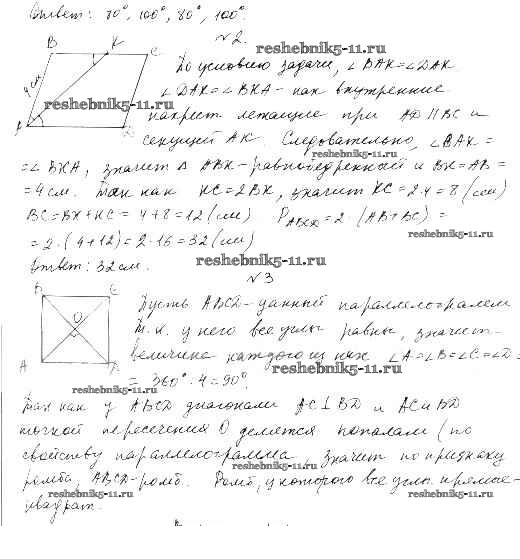 Ответ: 80°, 100°, 80°, 100°.
№2.
reshebnik5-11.ru
B K C
4 см
По условию задачи, ∠BAK=∠DAK
∠DAK=∠BKA - как внутренние
reshebnik5-11.ru
накрест лежащие при AD||BC и
A D
секущей AK. Следовательно, ∠BAK=
reshebnik5-11.ru
=∠BKA, значит Δ ABK - равнобедренный и BK=AB=
=4 см. Так как KC=2BK, значит KC=2·4=8 (см)
reshebnik5-11.ru
BC=BK+KC=4+8=12 (см). P ABCD=2·(AB+BC)=
reshebnik5-11.ru
=2·(4+12)=2·16=32 (см)
Ответ: 32 см.
reshebnik5-11.ru
№3
B C
Пусть ABCD - данный параллелограмм
O
Т.к. у него все углы равны, значит
величина каждого из них ∠A=∠B=∠C=∠D=
A D
reshebnik5-11.ru
=360°:4=90°.
reshebnik5-11.ru
Так как у ABCD диагонали AC⊥BD и AC и BD
точкой пересечения O делятся пополам (по
reshebnik5-11.ru
свойству параллелограмма, значит по признаку
reshebnik5-11.ru
ромба, ABCD - ромб. Ромб, у которого все углы прямые -
reshebnik5-11.ru
квадрат.